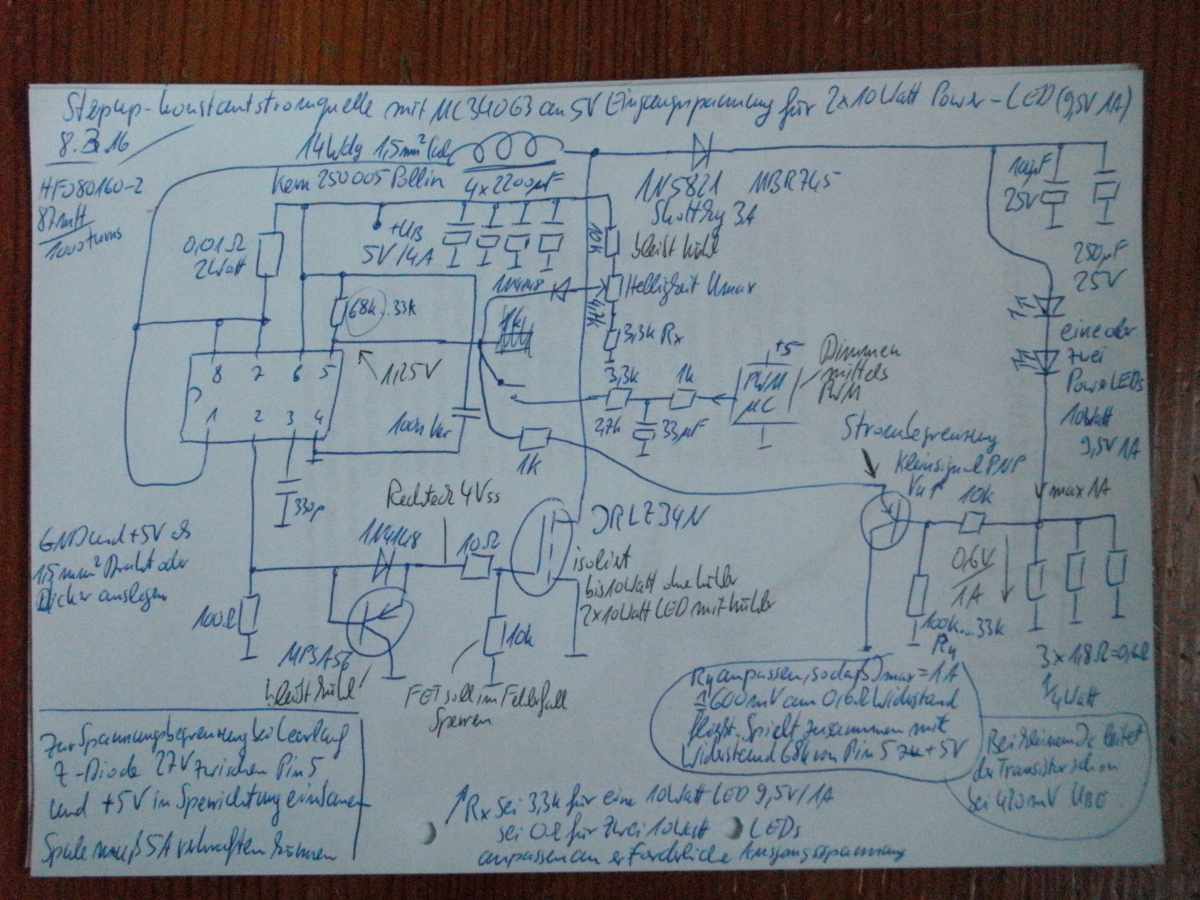 Stepup-Konstantstromquelle mit MC34063 an 5V Eingangspannung für 2x10Watt Power-LED (9,5V 1A)
8.3.16
HF080160-2
87mH
1000turns
14Wdg 1,5mm²
Kern 250005 Pollin
4x2200µF
1N5821 MBR745
Shottky 3A
bleibt kühl
10µF
25V
250µF
25V
0,01Ω
2Watt
+UB
5V/4A
10k
1N4148
Helligkeit Umax
4,7k
68k..33k
1k
3,3k Rx
1,25V
8 7 6 5
1 2 3 4
100n
3,3k
2,7k
1k
33µF
+5
PWM
µC
Dimmen
mittels
PWM
eine oder
zwei
PowerLEDs
10Watt
9,5V 1A
1k
Strombegrenzung
Kleinsignal PNP
10k
max 1A
330p
Rechteck 4Vss
1N4148
10Ω
IRLZ34N
isoliert
bis 10Watt ohne Kühler
2x10Watt LED mit Kühler
0,6V
1A
100k..33k
Ry
3x1,8Ω=0,6Ω
1/4Watt
GND und +5V als
1,5mm² Draht oder
Dicker auslegen
100Ω
MPSA56
bleibt kühl
10k
FET soll im Fehlerfall
Sperren
Ry anpassen, sodaß Imax = 1A
≙600mV am 0,6Ω Widerstand
fließt. Spielt zusammen mit
Widerstand 68k von Pin 5 zu +5V
Bei kleinem Ic leitet
der Transistor schon
bei 420mV UBE
Zur Spannungsbegrenzung bei Leerlauf
Z-Diode 27V zwischen Pin 5
und +5V in Sperrichtung einbauen
Spule muß 5A verkraften können
Rx sei 3,3k für eine 10Watt LED 9,5V/1A
sei 0Ω für zwei 10Watt LEDs
anpassen an erforderliche Ausgangsspannung